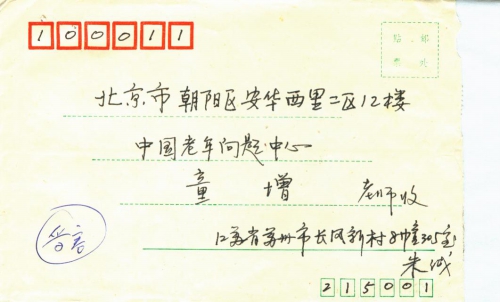 100011
贴 邮
票 处
北京市朝阳区安华西里二区12楼
中国老年问题中心
童增 老师收
江苏省苏州市长风新村8幢305室
朱成
215001